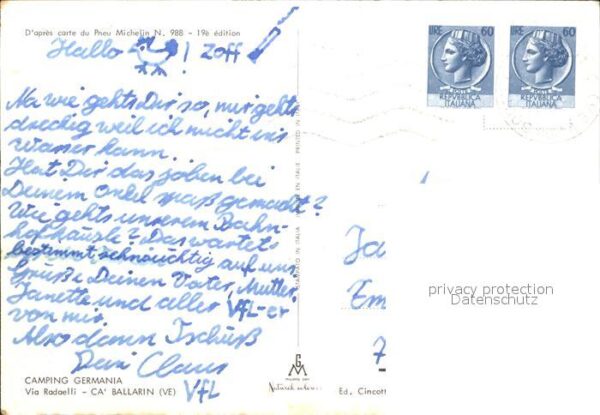 D'après carte du Pneu Michelin N. 988 - 19è édition
Hallo ! Zoff !
Na wie gehts Dir so, mir gehts
dreckig weil ich nicht ins
Wasser kann.
Hat Dir das joben bei
Deinem Onkel spaß gemacht?
Wie gehts unserem Bahn-
hofhäusle? Das wartet
bestimmt sehnsüchtig auf uns
Grüße Deinen Vater, Mutter
Janette und aller VfL-er
von mir.
Also dann Tschüß
Dein Claus
VfL
CAMPING GERMANIA
Via Radaelli - CA' BALLARIN (VE)
PRINTED IN ITALY
STAMPATO IN ITALIA
Ed, Cincott
LIRE 60
REPVBBLICA
ITALIANA
LIRE 60
REPVBBLICA
ITALIANA
Ja
Em
7
privacy protection
Datenschutz